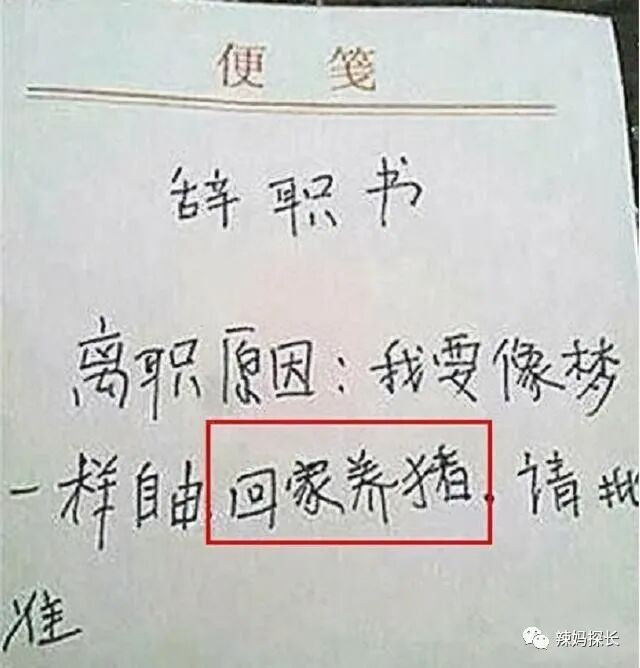 便笺
辞职书
离职原因：我要像梦
一样自由.回家养猪.请批
准
辣妈探长